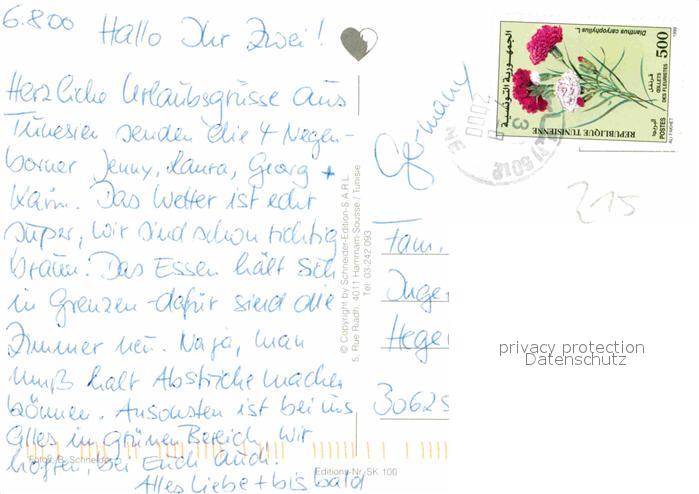 6.8.00 Hallo Ihr Zwei!
Herzliche Urlaubsgrüsse aus
Tunesien senden die 4 Negen-
borner Jenny, Laura, Georg +
Karin. Das Wetter ist echt
super, wir sind schon richtig
braun. Das Essen hält sich
in Grenzen - dafür sind die
Zimmer neu. Naja, man
muß halt Abstriche machen
können. Ansonsten ist bei uns
alles im grünen Bereich, wir
hoffen, bei Euch auch.
Alles Liebe + bis bald
Fotos: B. Schneider
Editions-Nr. SK 100
© Copyright by Schneider-Edition-S.A.R.L.
5, Rue Riadh, 4011 Hammam-Sousse / Tunisie
Tel: 03-242 093
Germany
Fam.
Inge
Hege
30625
215
privacy protection
Datenschutz
Dianthus caryophyllus L.
1999
500
قرنفل
ŒILLETS
DES FLEURISTES
POSTES
البريد
REPUBLIQUE TUNISIENNE
الجمهورية التونسية